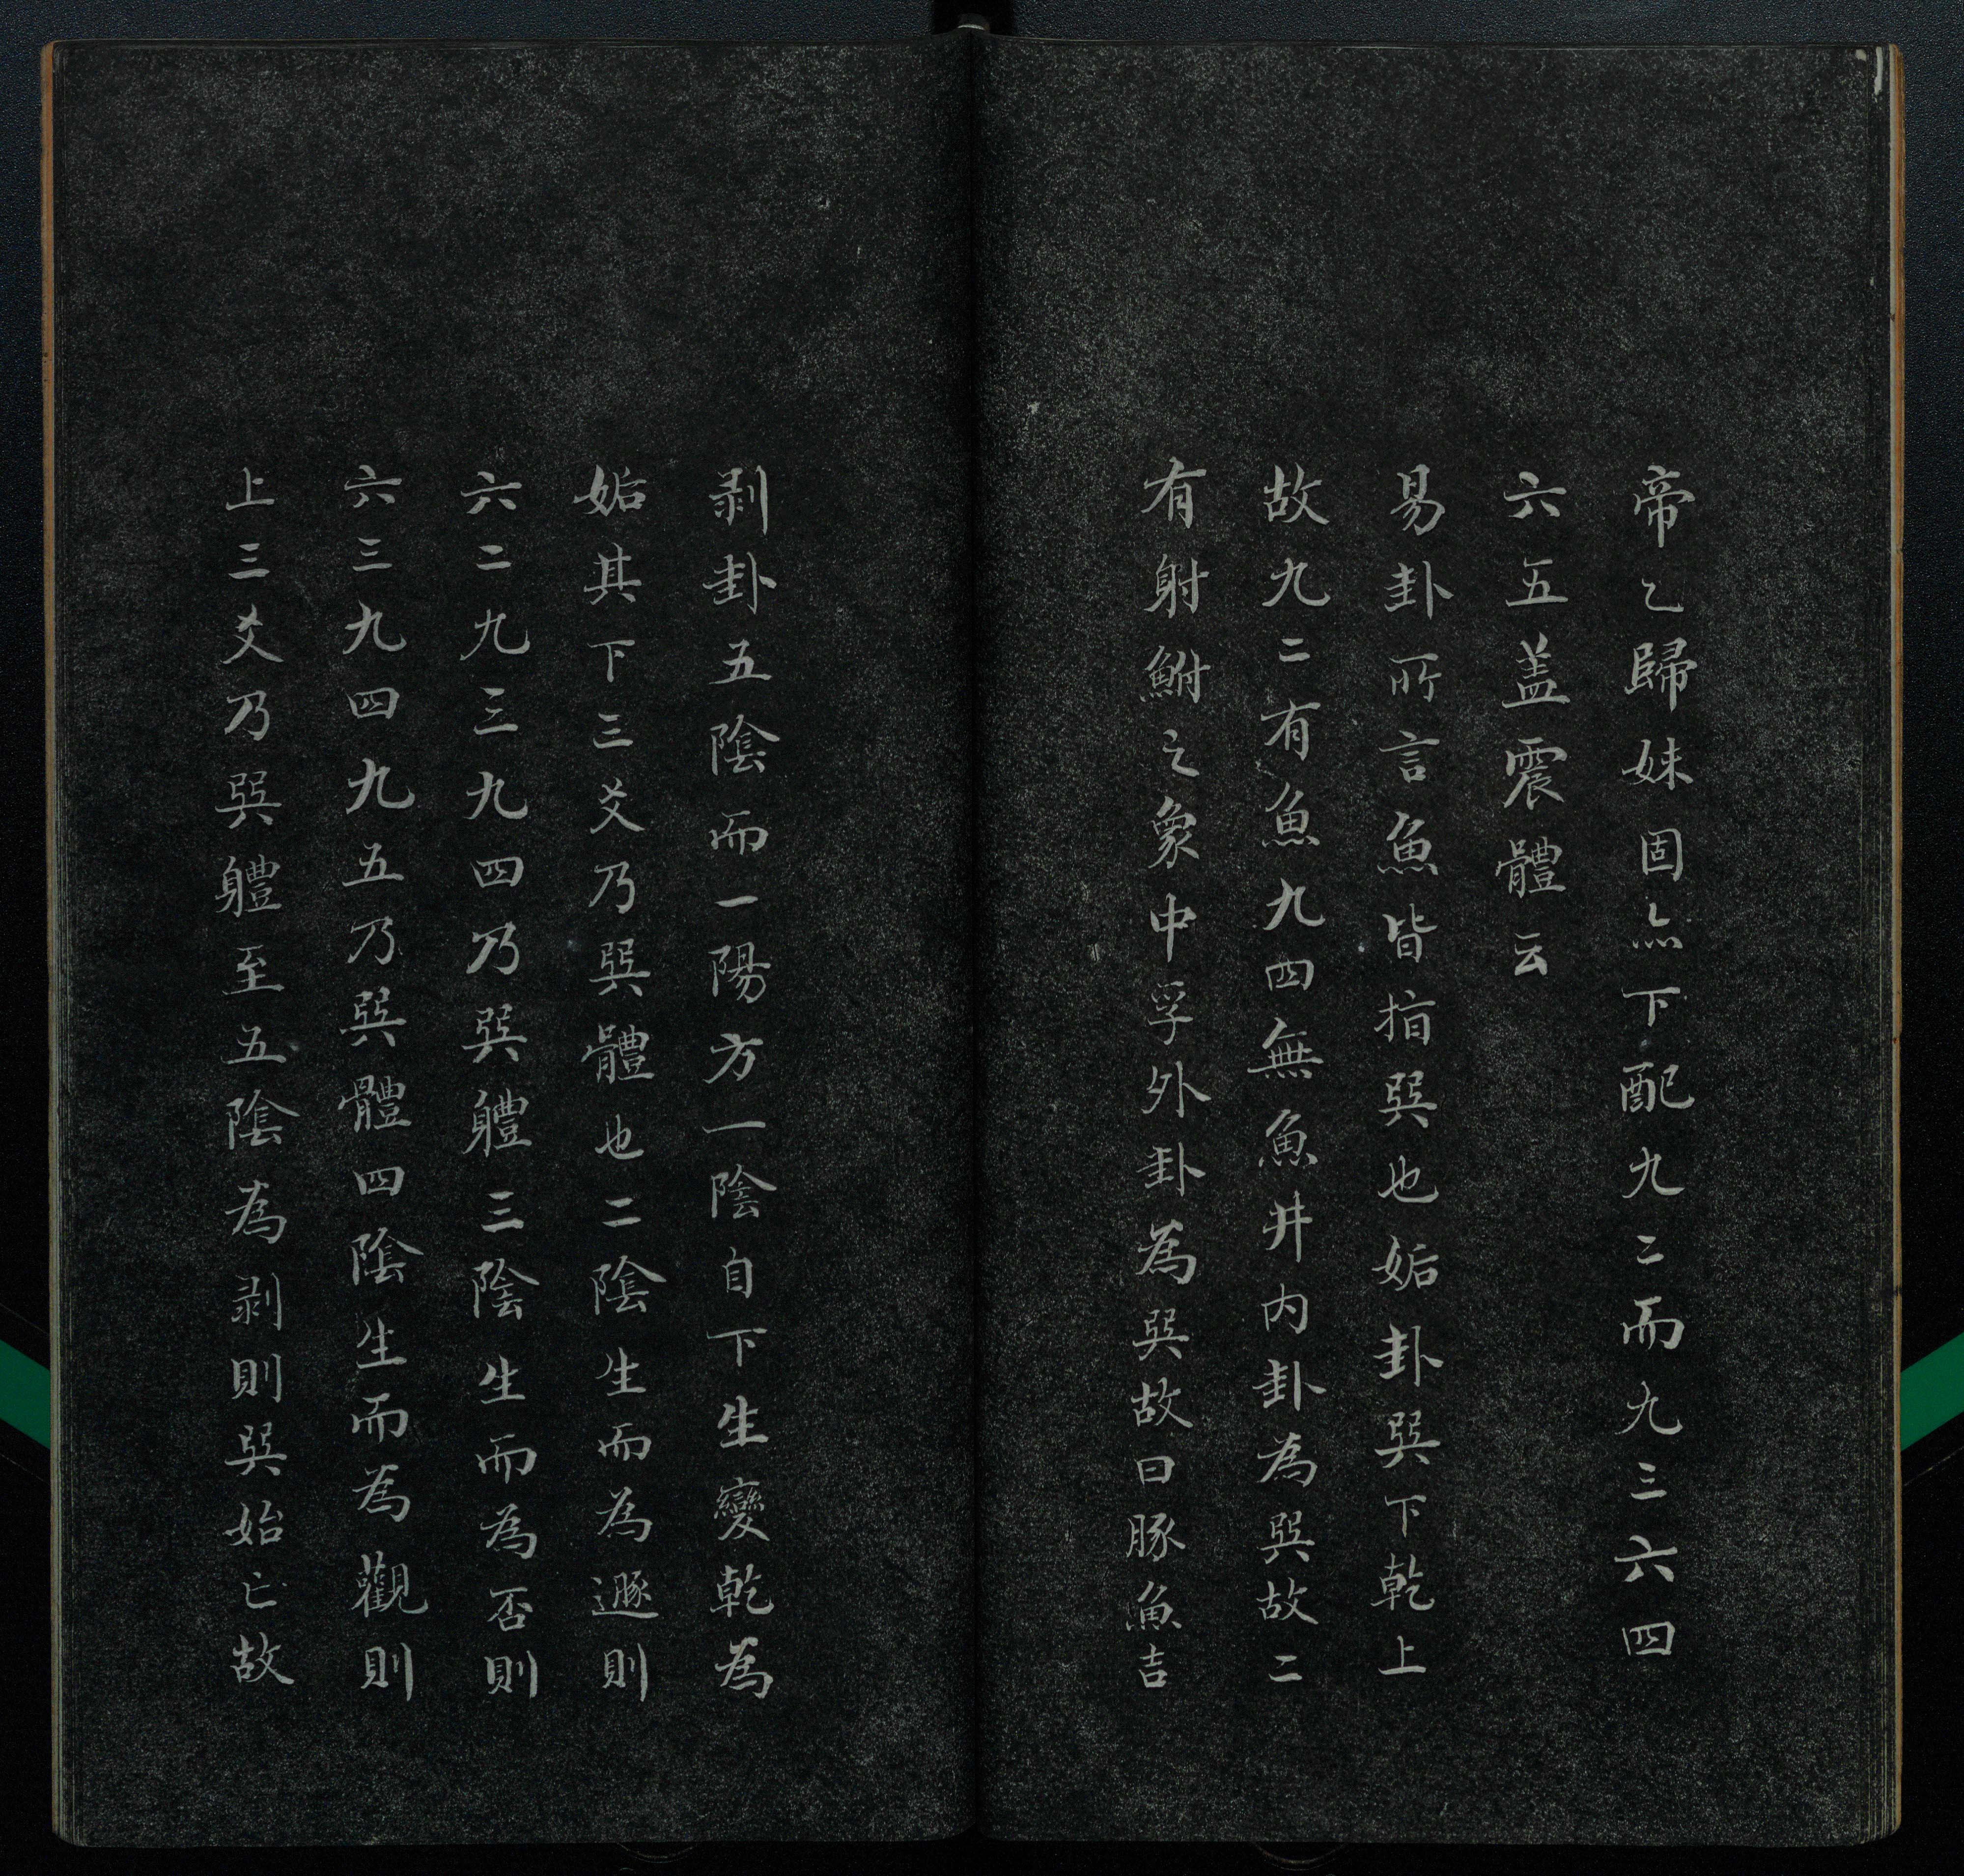 帝乙歸妹固亦下配九二而九三六四
六五盖震體云
易卦所言魚皆指巽也姤卦巽下乾上
故九二有魚九四無魚井内卦為巽故二
有射鮒之象中孚外卦為巽故曰豚魚吉
剥卦五陰而一陽方一陰自下生變乾為
姤其下三爻乃巽體也二陰生而為遯則
六二九三九四乃巽軆三陰生而為否則
六三九四九五乃巽體四陰生而為觀則
上三爻乃巽軆至五陰為剥則巽始亡故